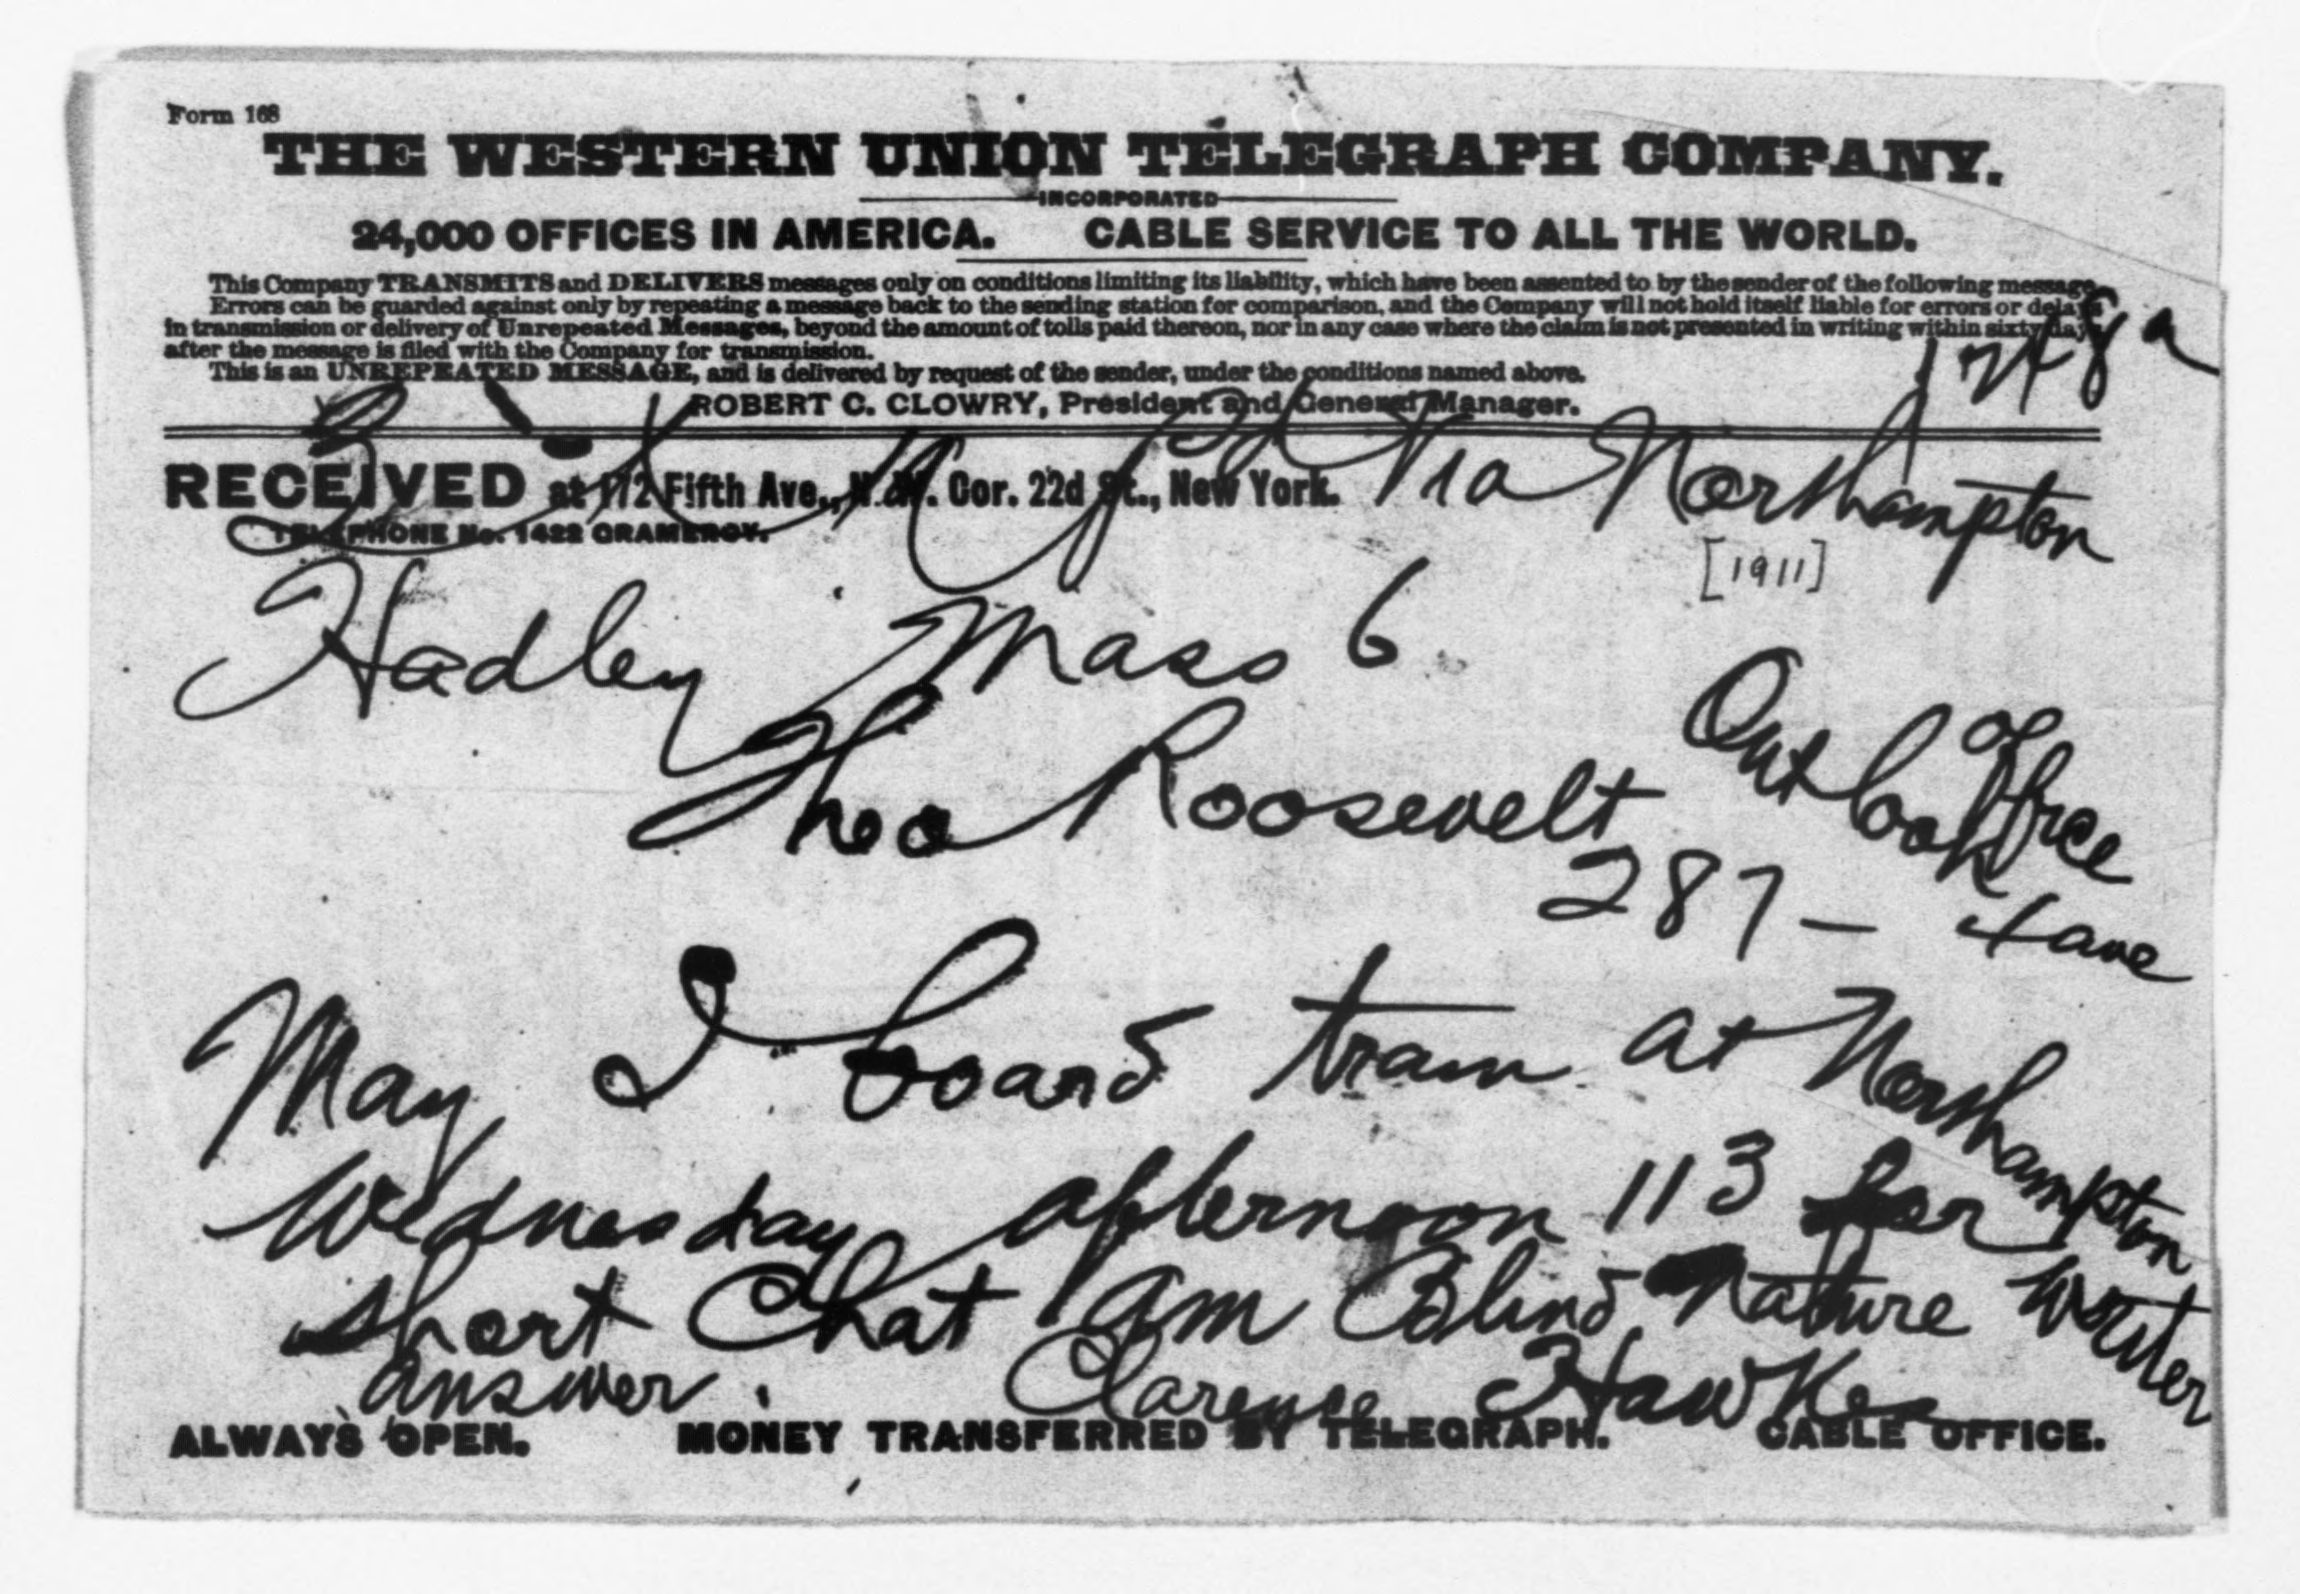 Form 168
THE WESTERN UNION TELEGRAPH COMPANY.
INCORPORATED
24,000 OFFICES IN AMERICA. CABLE SERVICE TO ALL THE WORLD.
This Company TRANSMITS and DELIVERS messages only on conditions limiting its liability, which have been assented to by the sender of the following message.
Errors can be guarded against only by repeating a message back to the sending station for comparison, and the Company will not hold itself liable for errors or delays
in transmission or delivery of Unrepeated Messages, beyond the amount of tolls paid thereon, nor in any case where the claim is not presented in writing within sixty days
after the message is filed with the Company for transmission.
This is an UNREPEATED MESSAGE, and is delivered by request of the sender, under the conditions named above.
ROBERT C. CLOWRY, President and General Manager.
RECEIVED at 172 Fifth Ave., N.W. Cor. 22d St., New York. Via Northampton
TELEPHONE No. 1422 GRAMERCY.
[1911]
Hadley Mass 6
Theo Roosevelt Outlook Office
287 - 4 ave
May I board train at Northampton
Wednesday afternoon 113 for
short Chat Am Blind Nature writer
answer. Clarence Hawkes
ALWAYS OPEN. MONEY TRANSFERRED BY TELEGRAPH. CABLE OFFICE.